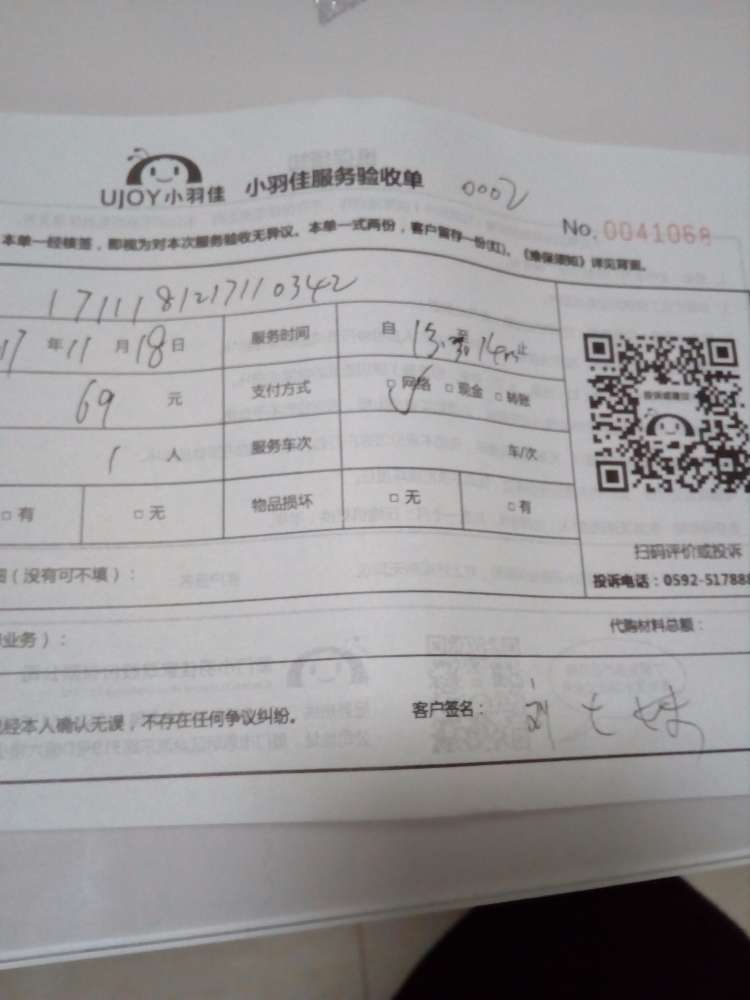 UJOY小羽佳 小羽佳服务验收单 0002
No. 0041068
本单一经核签，即视为对本次服务验收无异议。本单一式两份，客户留存一份(红)。《维保须知》详见背面。
1711181217110342
17 年 11 月 18 日 服务时间 自 至 止
69 元 支付方式 □ 网络 □ 现金 □ 转账
1 人 服务车次 车/次
□ 有 □ 无 物品损坏 □ 无 □ 有
扫码评价或投诉
（没有可不填）：
投诉电话：0592-517888
业务）：
代购材料总额：
经本人确认无误，不存在任何争议纠纷。 客户签名：